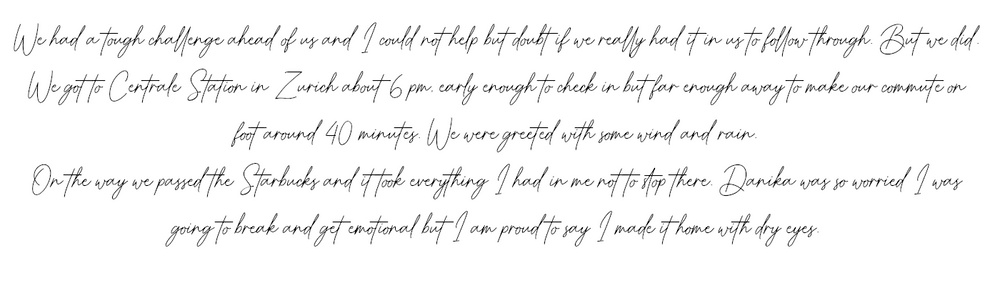 We had a tough challenge ahead of us and I could not help but doubt if we really had it in us to follow through. But we did.
We got to Centrale Station in Zurich about 6 pm, early enough to check in but far enough away to make our commute on
foot around 40 minutes. We were greeted with some wind and rain.
On the way we passed the Starbucks and it took everything I had in me not to stop there. Danika was so worried I was
going to break and get emotional but I am proud to say I made it home with dry eyes.